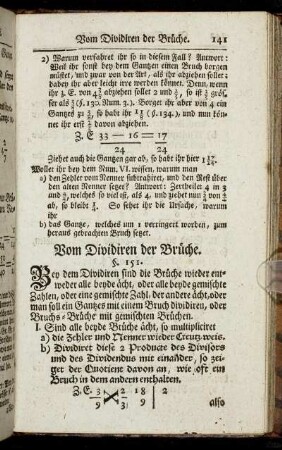 Vom Dividiren der Brüche. 141
2) Warum verfahret ihr so in diesem Fall? Antwort:
Weil ihr sonst bey dem Gantzen einen Bruch borgen
müstet, und zwar von der Art, als ihr abziehen sollet:
dabey ihr aber leicht irre werden könnet. Denn, wenn
ihr z. E. von 4 abziehen sollet 2 und so ist grös-
ser als (§. 130. Num. 3.). Borget ihr aber von 4 ein
Gantzes so habt ihr (§. 134.), und nun kön-
net ihr erst davon abziehen.
Z. E. 33 — 16 = 17
24 24
Ziehet auch die Gantzen gar ab, so habt ihr hier
Wollet ihr bey dem Num. VI. wissen, warum man
a) den Zehler vom Nenner subtrahiret, und den Rest über
den alten Nenner setzet? Antwort: Zertheilet 4 in 3
und welches so viel ist, als 4, und ziehet nun von
ab, so bleibt So sehet ihr die Ursache, warum
ihr
b) das Gantze, welches um 1 verringert worden, zum
heraus gebrachten Bruch setzet.
Vom Dividiren der Brüche.
§. 151.
Bey dem Dividiren sind die Brüche wieder ent-
weder alle beyde ächt, oder alle beyde gemischte
Zahlen, oder eine gemischte Zahl, der andere ächt, oder
man soll ein Gantzes mit einem Bruch dividiren, oder
Bruchs-Brüche mit gemischten Brüchen.
I. Sind alle beyde Brüche ächt, so multipliciret
a) die Zehler und Nenner wieder Creutz-weis.
b) Dividiret diese 2 Producte des Divisors
und des Dividendus mit einander, so zei-
get der Quotient davon an, wie oft ein
Bruch in dem andern enthalten.
Z. E. 3 2 18 | 2
9 3 9 |
also